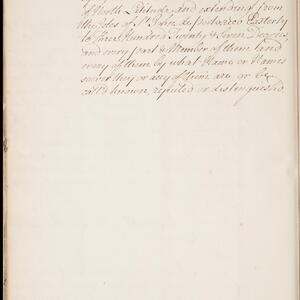 of North Latitude, and extending from
the Isles of St. John de portoreco Easterly
to Three Hundred Twenty & Seven Degrees,
and every part & Member of them (and
every of them by what Name or Names
soever they or any of them are or be
call'd known, reputed or distinguished